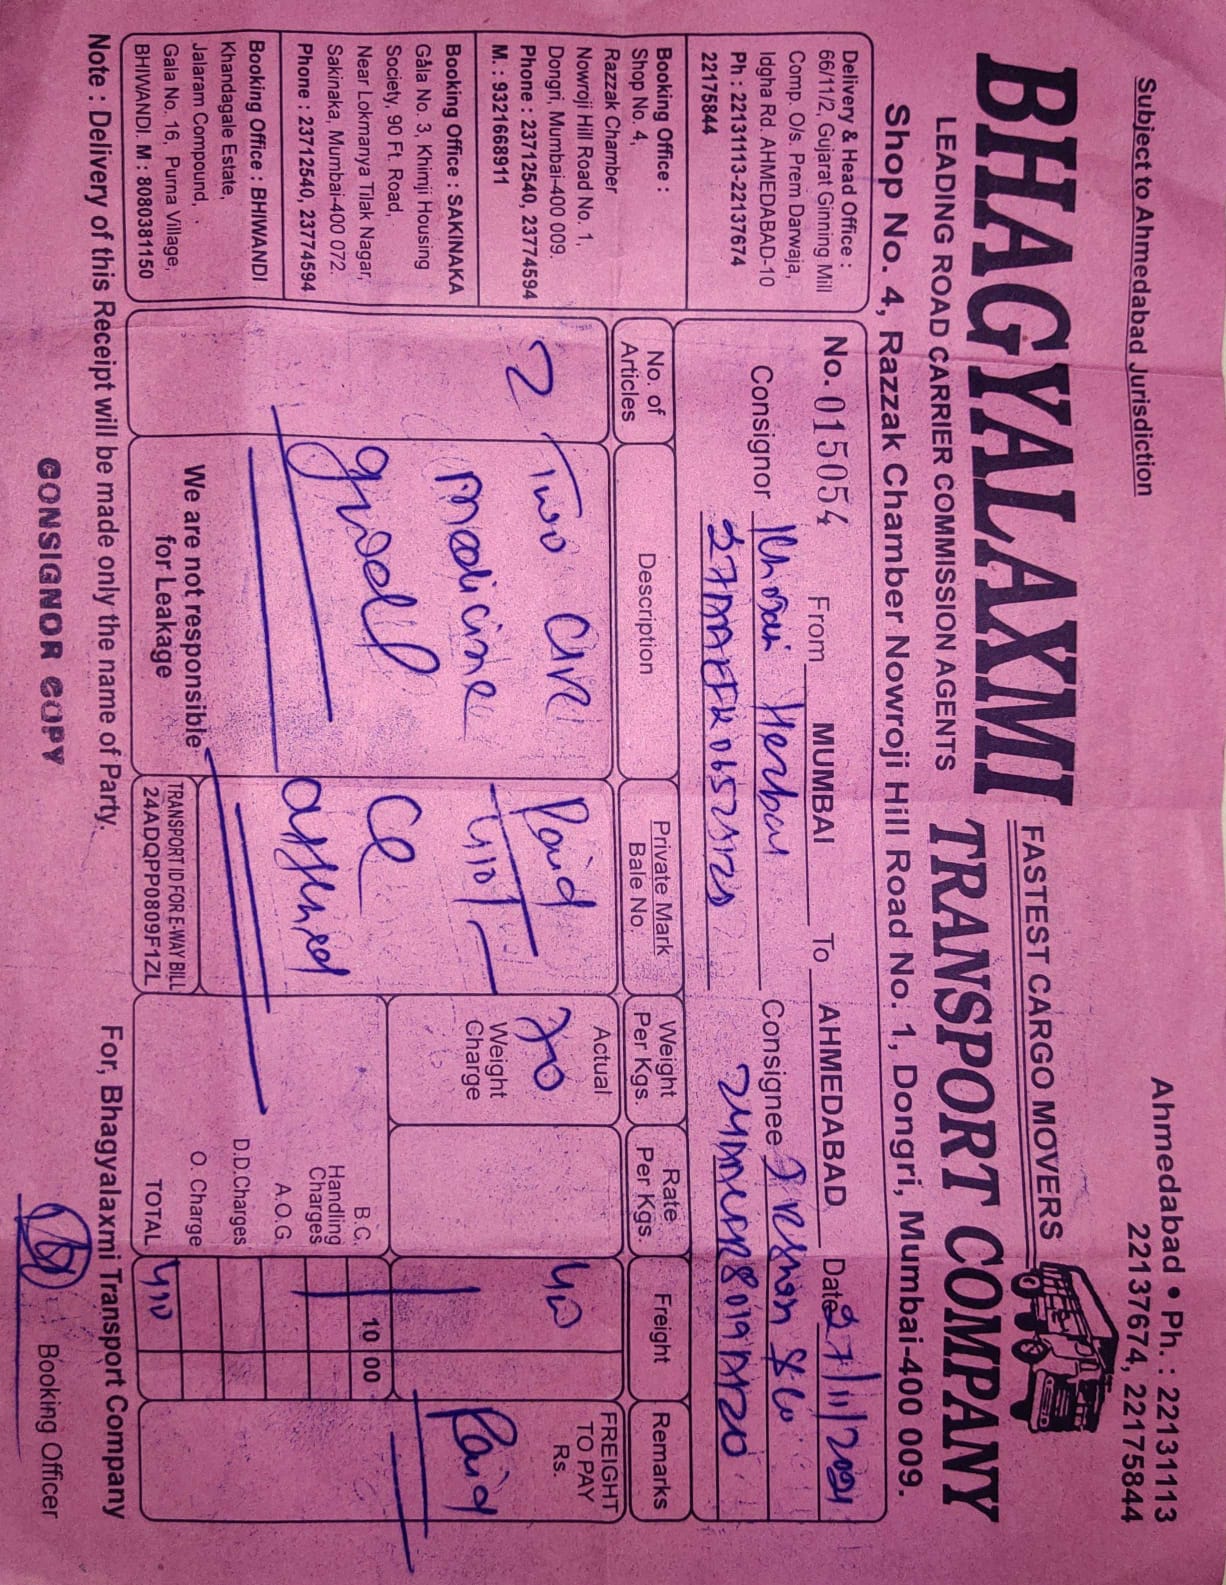 Subject to Ahmedabad Jurisdiction
Ahmedabad • Ph. : 22131113
22137674, 22175844
BHAGYALAXMI
FASTEST CARGO MOVERS
TRANSPORT COMPANY
LEADING ROAD CARRIER COMMISSION AGENTS
Shop No. 4, Razzak Chamber Nowroji Hill Road No. 1, Dongri, Mumbai-400 009.
Delivery & Head Office :
66/11/2, Gujarat Ginning Mill
Comp. O/s. Prem Darwaja,
Idgha Rd. AHMEDABAD-10
Ph : 22131113-22137674
22175844
Booking Office :
Shop No. 4,
Razzak Chamber
Nowroji Hill Road No. 1,
Dongri, Mumbai-400 009.
Phone : 23712540, 23774594
M. : 9321668911
Booking Office : SAKINAKA
Gala No. 3, Khimji Housing
Society, 90 Ft. Road,
Near Lokmanya Tilak Nagar,
Sakinaka, Mumbai-400 072.
Phone : 23712540, 23774594
Booking Office : BHIWANDI
Khandagale Estate,
Jalaram Compound,
Gala No. 16, Purna Village,
BHIVANDI. M : 8080381150
No. 015054 From MUMBAI To AHMEDABAD Date 27/11/2021
Consignor Herbal Consignee
No. of Articles
Description
Private Mark
Bale No.
Weight Per Kgs.
Rate Per Kgs.
Freight
Remarks
2
Two
medicine
Paid
410/-
Actual
70
Weight Charge
FREIGHT TO PAY Rs.
Paid
B.C. 10 00
Handling Charges
A.O.G.
D.D.Charges
O. Charge
TOTAL 410
We are not responsible
for Leakage
TRANSPORT ID FOR E-WAY BILL
24ADQPP0809F1ZL
Note : Delivery of this Receipt will be made only the name of Party.
For, Bhagyalaxmi Transport Company
CONSIGNOR COPY
Booking Officer